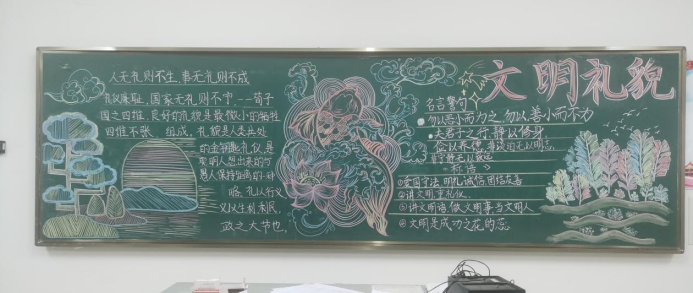 人无礼则不生，事无礼则不成
礼义廉耻，国家无礼则不宁，--荀子
国之四维，良好的礼貌是最微小的牺牲
四维不张 组成，礼貌是人类共处
的金钥匙礼仪是
聪明人想出来的与
愚人保持距离的一种
略，礼以行义
义以生利利民，
政之大节也，
文明礼貌
名言警句
勿以恶小而为之，勿以善小而不为
夫君子之行，静以修身
俭以养德，非淡泊无以明志
非宁静无以致远
标语
①爱国守法，明礼诚信，团结友善
②讲文明，重礼仪
③讲文明话，做文明事，当文明人
④文明是成功之花的蕊